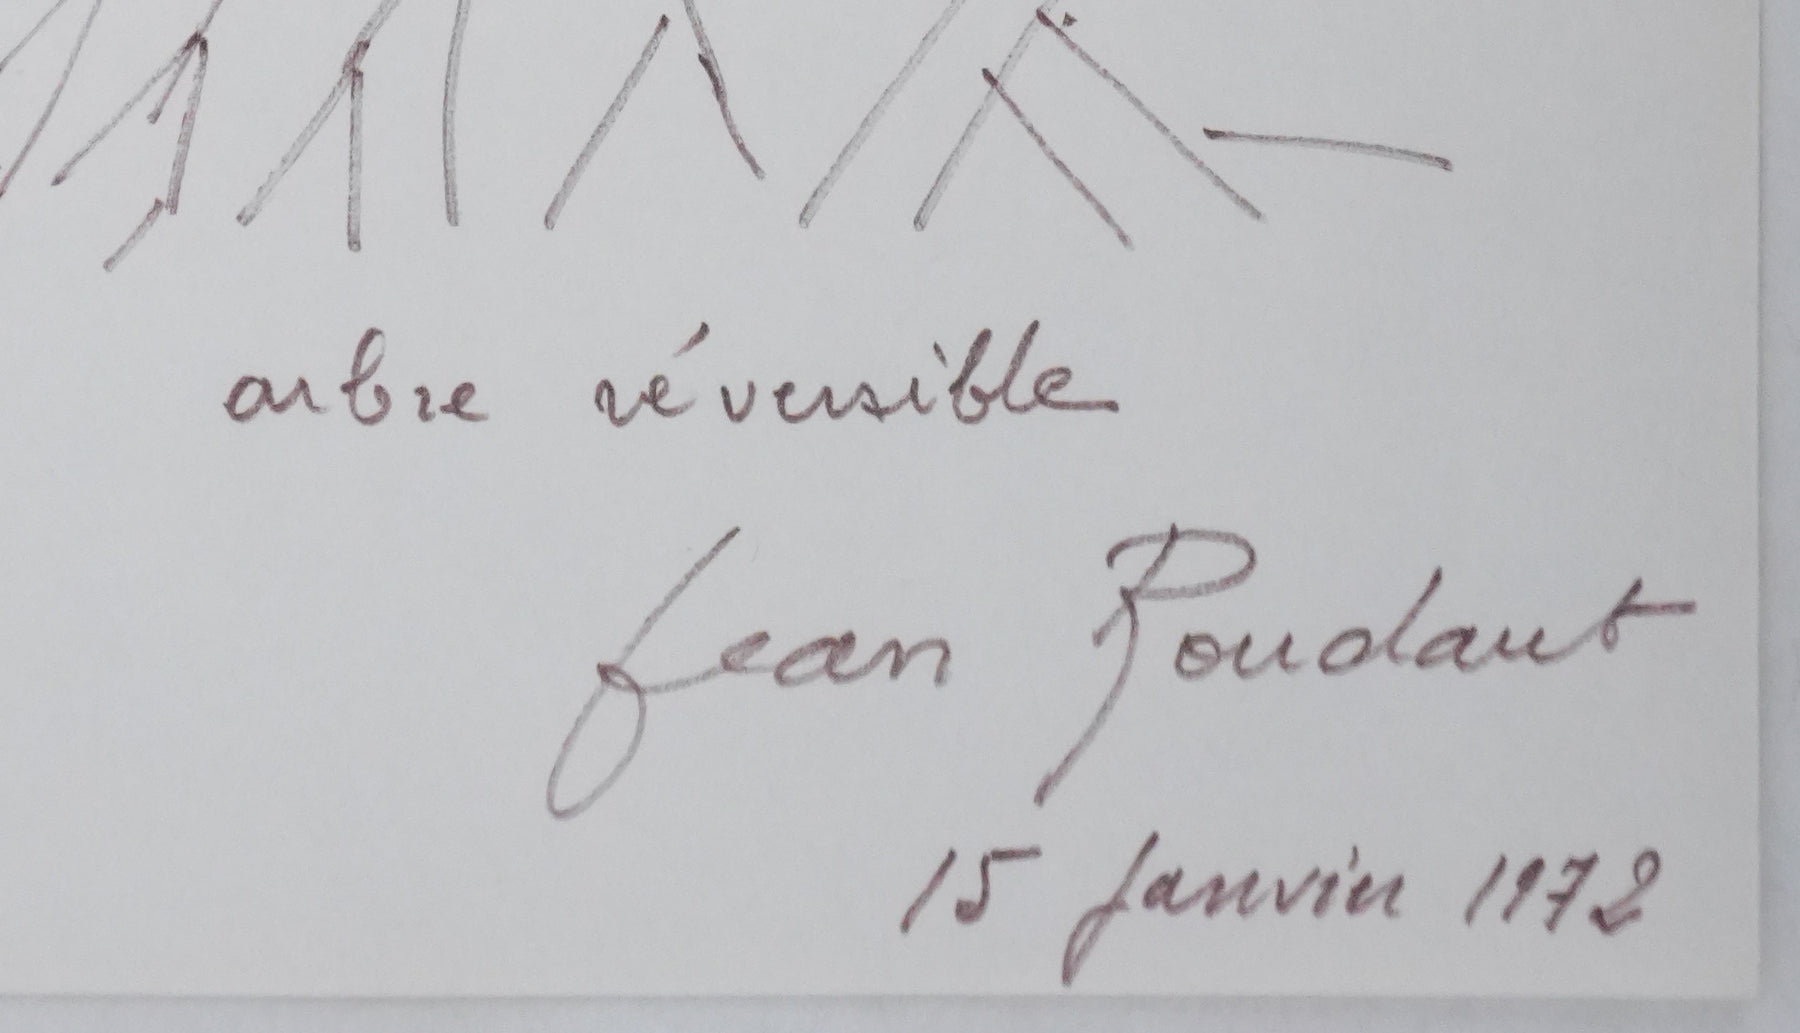 arbre réversible
Jean Roudaut
15 Janvier 1972